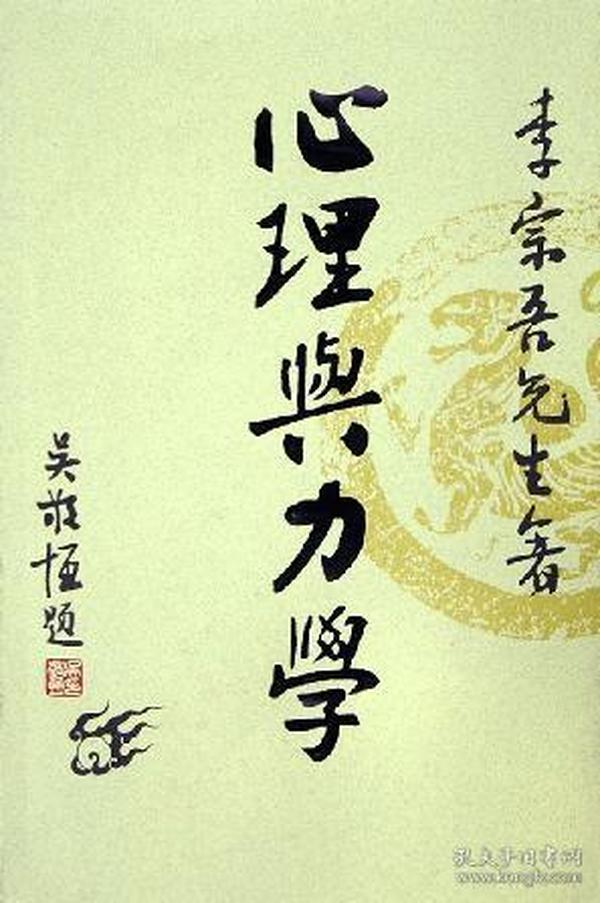 李宗吾先生著
心理與力學
吳敬恆題
孔夫子旧书网
www.kongfz.com